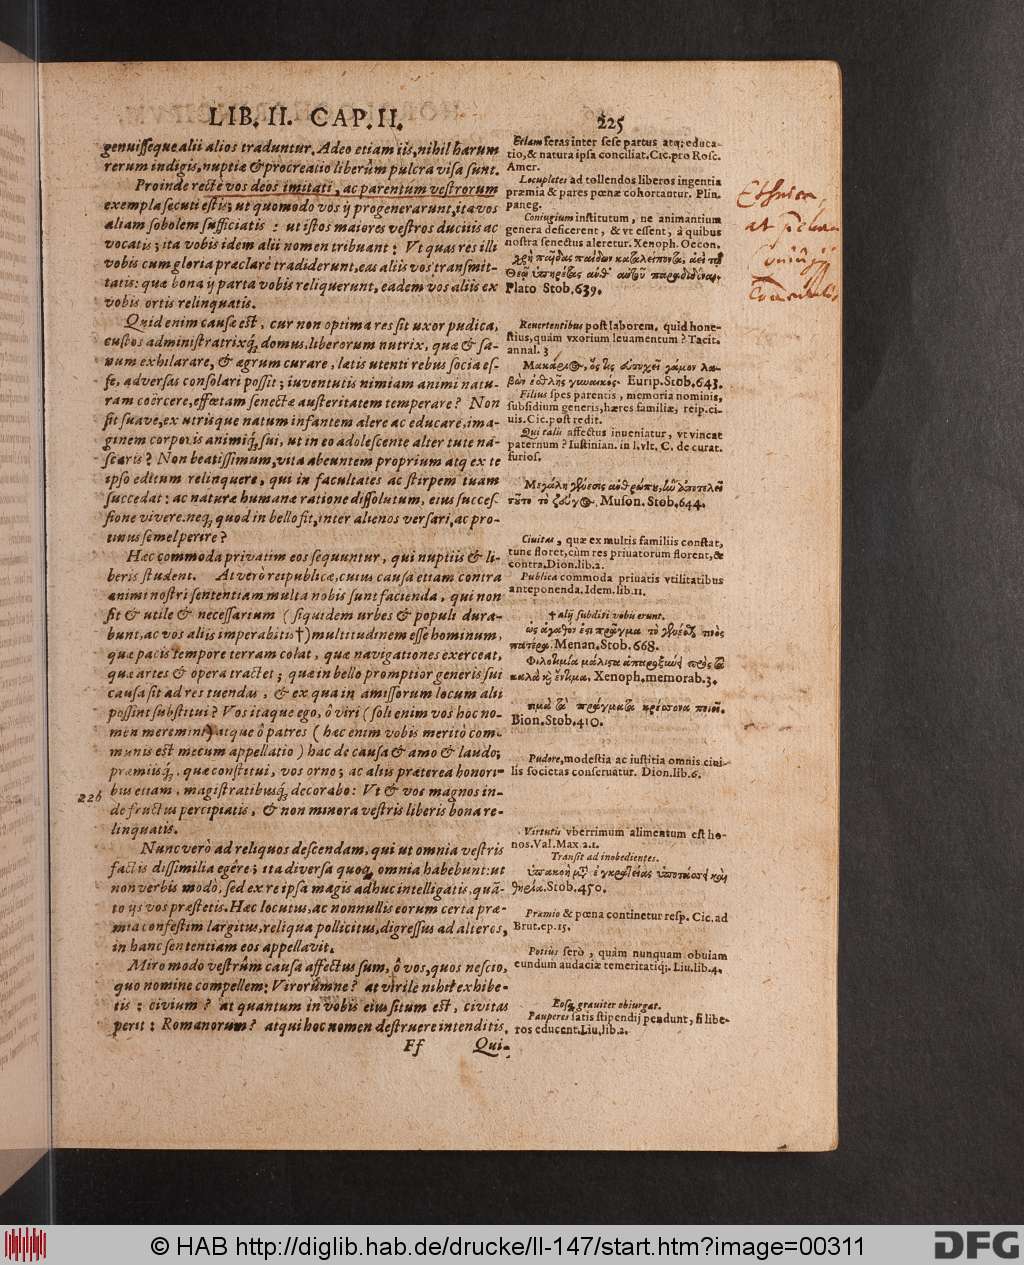 LIB. II. CAP. II.
225
genuisseque alii alios traduntur. Adeo etiam iis, nihil harum
rerum indigis, nuptiæ & procreatio liberûm pulcra visa sunt.
Proinde recte vos deos imitati, ac parentum vestrorum
exempla secuti estis; ut quomodo vos ij progenerarunt, ita vos
aliam sobolem sufficiatis : ut istos maiores vestros ducitis ac
vocatis; ita vobis idem alii nomen tribuant : Vt quas res illi
vobis cum gloria præclare tradiderunt, eas aliis vos transmit-
tatis: quæ bona ij parta vobis reliquerunt, eadem vos aliis ex
vobis ortis relinquatis.
Quid enim causæ est, cur non optima res sit uxor pudica,
custos administratrixq́; domus, liberorum nutrix, quæ & sa-
num exhilarare, & ægrum curare, lætis utenti rebus socia es-
se, adversas consolari possit; iuventutis nimiam animi natu-
ram coërcere, effœtam senectæ austeritatem temperare? Non
sit suave, ex utrisque natum infantem alere ac educare, ima-
ginem corporis animiq́; sui, ut in eo adolescente alter tute na-
scaris? Non beatissimum, vita abeuntem proprium atq; ex te
ipso editum relinquere, qui in facultates ac stirpem tuam
succedat : ac naturæ humanæ ratione dissolutum, eius succes-
sione vivere. neq; quod in bello fit, inter alienos versari, ac pro-
tinus semel perire?
Hæc commoda privatim eos sequuntur, qui nuptiis & li-
beris student. At verò reipublicæ, cuius causa etiam contra
animi nostri sententiam multa nobis sunt facienda, qui non
sit & utile & necessarium (siquidem urbes & populi dura-
bunt, ac vos aliis imperabitis†) multitudinem esse hominum,
quæ pacis tempore terram colat, quæ navigationes exerceat,
quæ artes & opera tractet; quæ in bello promptior generis sui
causa sit ad res tuendas, & ex qua in amissorum locum alii
possint substitui? Vos itaque ego, ô viri (soli enim vos hoc no-
men meremini) atque ô patres (hac enim vobis meritò com-
munis est mecum appellatio) hac de causa & amo & laudo;
præmiisq́; quæ constitui, vos orno; ac aliis præterea honori-
bus etiam, magistratibusq́; decorabo : Vt & vos magnos in-
de fructus percipiatis, & non minora vestris liberis bona re-
linquatis.
226
Nunc verò ad reliquos descendam, qui ut omnia vestris
factis dissimilia egêre; ita diversa quoq; omnia habebunt: ut
non verbis modò, sed ex re ipsa magis adhuc intelligatis, quã-
to ijs vos præstetis. Hæc locutus, ac nonnullis eorum certa præ-
mia confestim largitus, reliqua pollicitus, digressus ad alteros,
in hanc sententiam eos appellavit.
Miro modo vestrûm causa affectus sum, ô vos, quos nescio,
quo nomine compellem: Virorûmne? at virile nihil exhibe-
tis : civium? at quantum in vobis eius situm est, civitas
perit : Romanorum? at qui hoc nomen destruere intenditis.
Ff
Qui-
Etiam feras inter sese partus atq; educa-
tio, & natura ipsa conciliat. Cic. pro Rosc.
Amer.
Locupletes ad tollendos liberos ingentia
præmia & pares pœnæ cohortantur. Plin.
paneg.
Coniugium institutum, ne animantium
genera deficerent, & vt essent, à quibus
nostra senectus aleretur. Xenoph. Oecon.
χρὴ παῖδας παίδων καταλείποντα, ἀεὶ τῷ
Θεῷ ὑπηρέτας ἀνθ᾽ αὑτοῦ παραδιδόναι.
Plato Stob. 639.
Reuertentibus post laborem, quid hone-
stius, quàm vxorium leuamentum? Tacit.
annal. 3
Μακάριος, ὅς τις εὐτυχεῖ γάμον λα-
βὼν ἐσθλῆς γυναικός. Eurip. Stob. 643.
Filius spes parentis, memoria nominis,
subsidium generis, hæres familiæ, reip. ci-
uis. Cic. post redit.
Qui talis affectus inueniatur, vt vincat
paternum? Iustinian. in l. vlt. C. de curat.
furios.
Μεγάλη
τοῦτο τὸ ζεῦγος. Muson. Stob. 644.
Ciuitas, quæ ex multis familiis constat,
tunc floret, cùm res priuatorum florent, &
contra. Dion. lib. 2.
Publica commoda priuatis vtilitatibus
anteponenda. Idem. lib. 11.
† alij subditi vobis erunt.
ὡς ἀγαθόν ἐστι πρᾶγμα τὸ
πατέρα. Menan. Stob. 668.
Φιλοτιμία μάλιστα
καλὰ καὶ ἔντιμα. Xenoph. memorab. 3.
τιμὰ τὰ πράγματα κρέσσονα ποιεῖ.
Bion. Stob. 410.
Pudore, modestia ac iustitia omnis ciui-
lis societas conseruatur. Dion. lib. 6.
Virtutis vberrimum alimentum est ho-
nos. Val. Max. 2. 1.
Transit ad inobedientes.
Stob. 450.
Præmio & pœna continetur resp. Cic. ad
Brut. ep. 15.
Potius serò, quàm nunquam obuiam
eundum audaciæ temeritatiq́;. Liu. lib. 4.
Eosq; grauiter obiurgat.
Pauperes satis stipendij pendunt, si libe-
ros educent. Liu. lib. 2.
© HAB http://diglib.hab.de/drucke/li-147/start.htm?image=00311
DFG